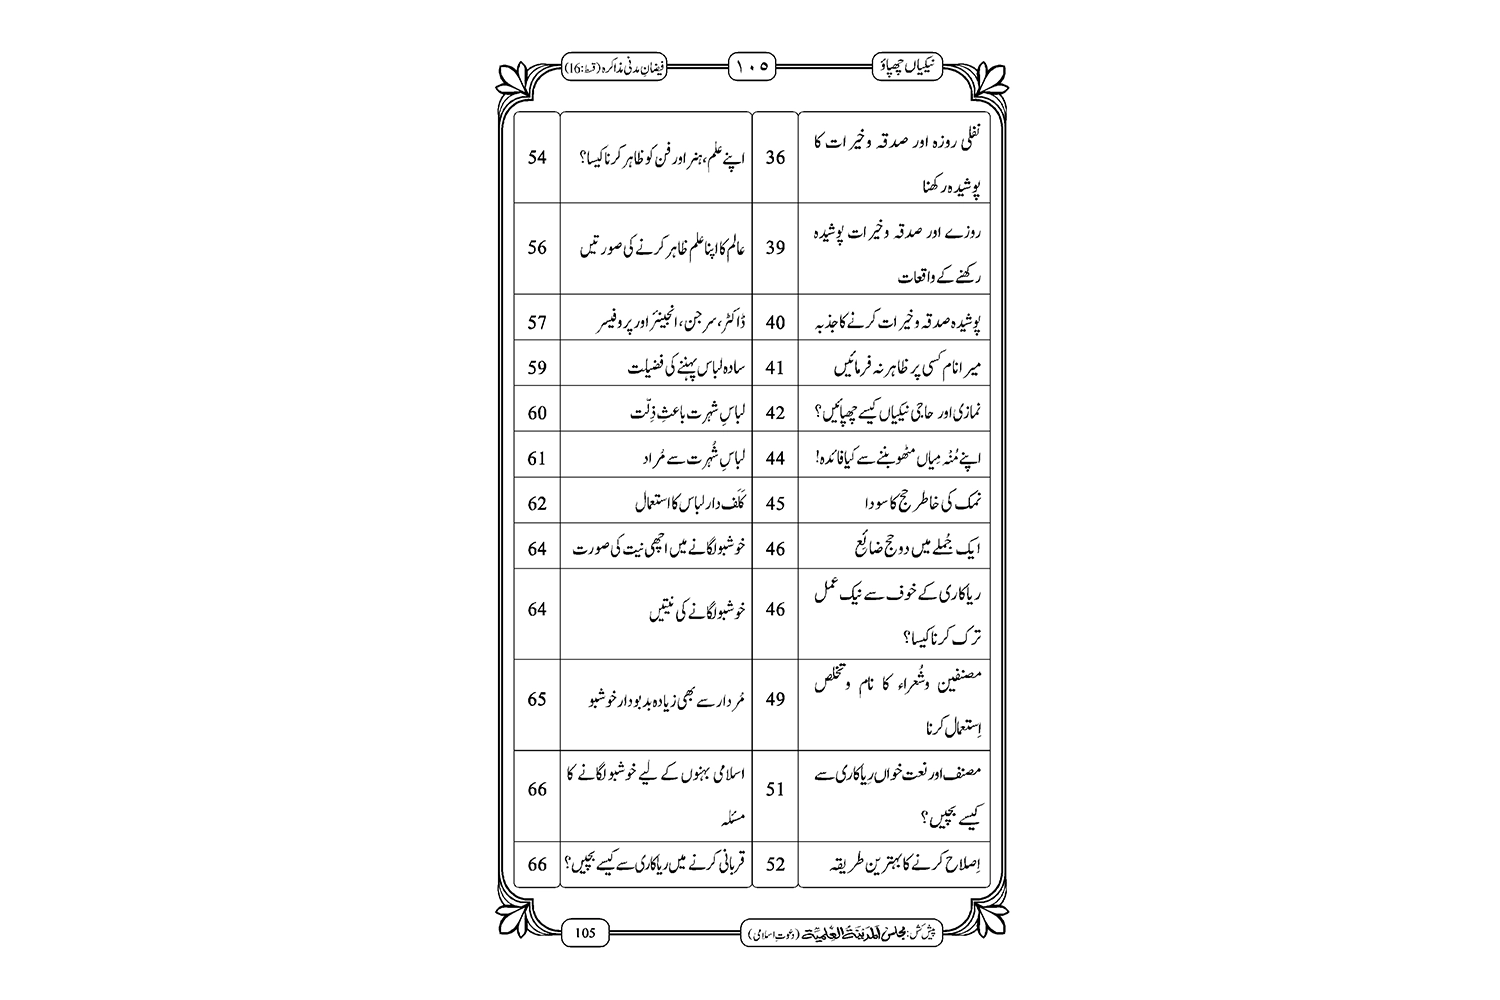 نیکیاں چھپاؤ
۱۰۵
فیضانِ مدنی مذاکرہ (قسط:16)
نفلی روزہ اور صدقہ وخیرات کا
پوشیدہ رکھنا
36
اپنے علم، ہنر اور فن کو ظاہر کرنا کیسا؟
54
روزے اور صدقہ وخیرات پوشیدہ
رکھنے کے واقعات
39
عالم کا اپنا علم ظاہر کرنے کی صورتیں
56
پوشیدہ صدقہ وخیرات کرنے کا جذبہ
40
ڈاکٹر، سرجن، انجینئر اور پروفیسر
57
میرا نام کسی پر ظاہر نہ فرمائیں
41
سادہ لباس پہننے کی فضیلت
59
نمازی اور حاجی نیکیاں کیسے چھپائیں؟
42
لباسِ شہرت باعثِ ذِلّت
60
اپنے مُنْہ مِیاں مٹھو بننے سے کیا فائدہ!
44
لباسِ شُہرت سے مُراد
61
نمک کی خاطر حج کا سودا
45
کَلَف دار لباس کا استعمال
62
ایک جُملے میں دو حج ضائِع
46
خوشبو لگانے میں اچھی نیت کی صورت
64
ریاکاری کے خوف سے نیک عمل
ترک کرنا کیسا؟
46
خوشبو لگانے کی نیتیں
64
مصنفین وشُعراء کا نام وتخلص
اِستعمال کرنا
49
مُردار سے بھی زیادہ بدبودار خوشبو
65
مصنف اور نعت خواں رِیاکاری سے
کیسے بچیں؟
51
اسلامی بہنوں کے لیے خوشبو لگانے کا
مسئلہ
66
اِصلاح کرنے کا بہترین طریقہ
52
قربانی کرنے میں ریاکاری سے کیسے بچیں؟
66
پیش کش: مجلس المدینۃ العلمیۃ (دعوتِ اسلامی)
105